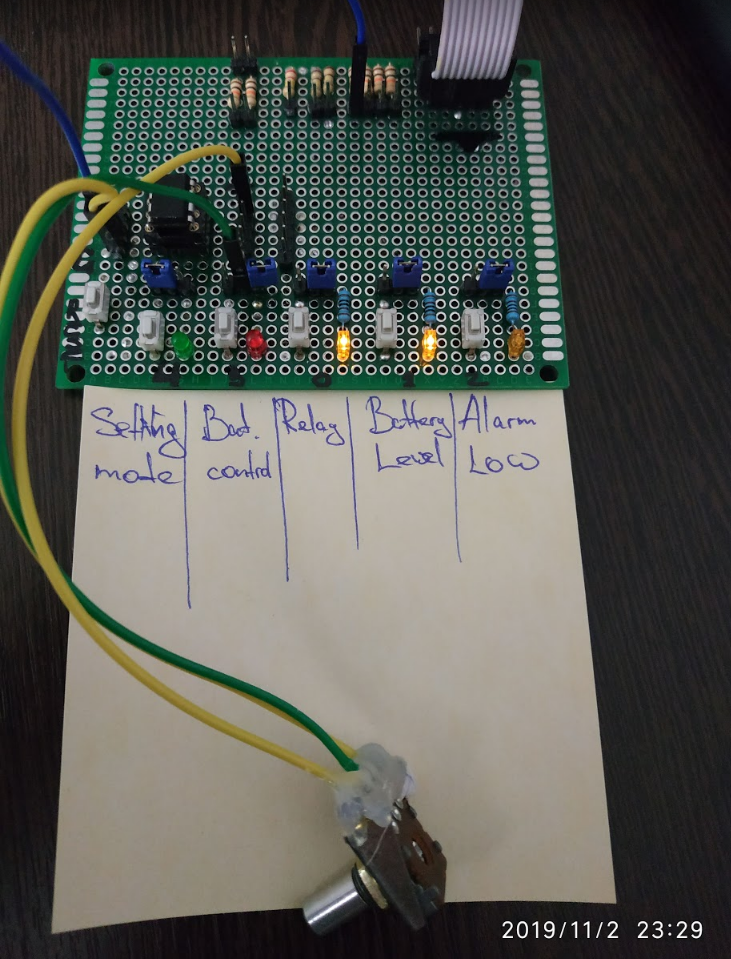 4 3 0 1 2
Setting mode
Bat. control
Relay
Battery Level
Alarm LOW
2019/11/2 23:29